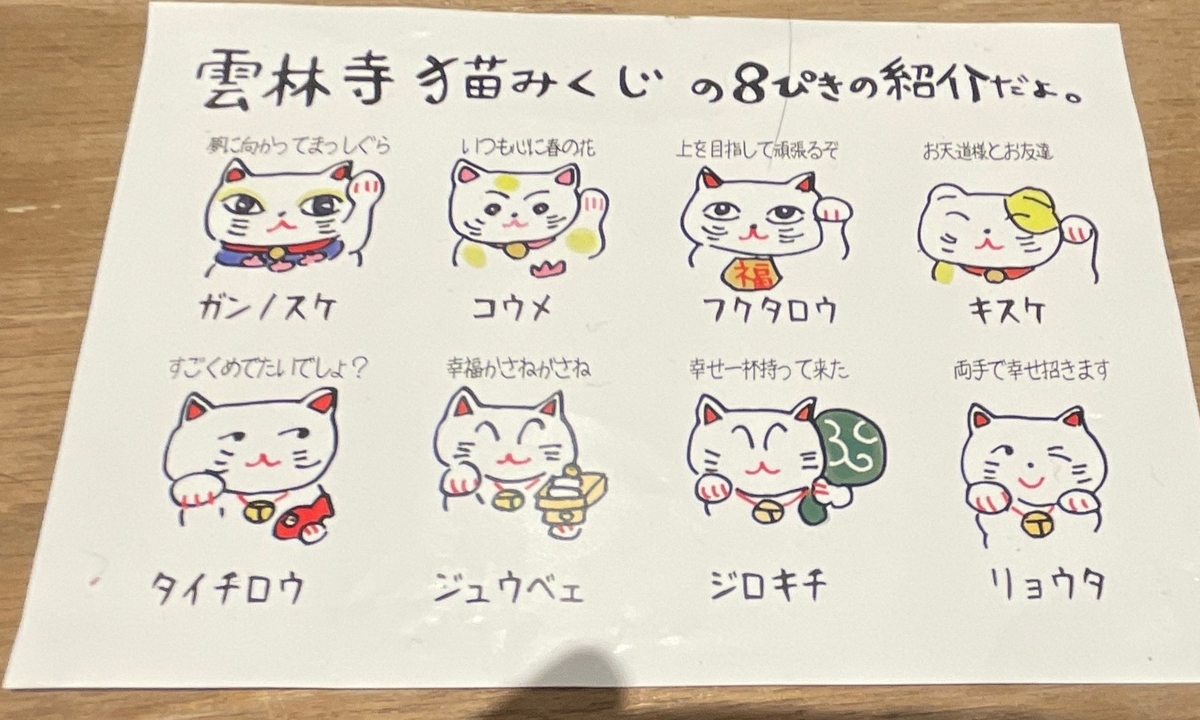 雲林寺 猫みくじ の8ぴきの紹介だよ。
夢に向かってまっしぐら
いつも心に春の花
上を目指して頑張るぞ
お天道様とお友達
福
ガンノスケ
コウメ
フクタロウ
キスケ
すごくめでたいでしょ？
幸福かさねがさね
幸せ一杯持って来た
両手で幸せ招きます
タイチロウ
ジュウベェ
ジロキチ
リョウタ